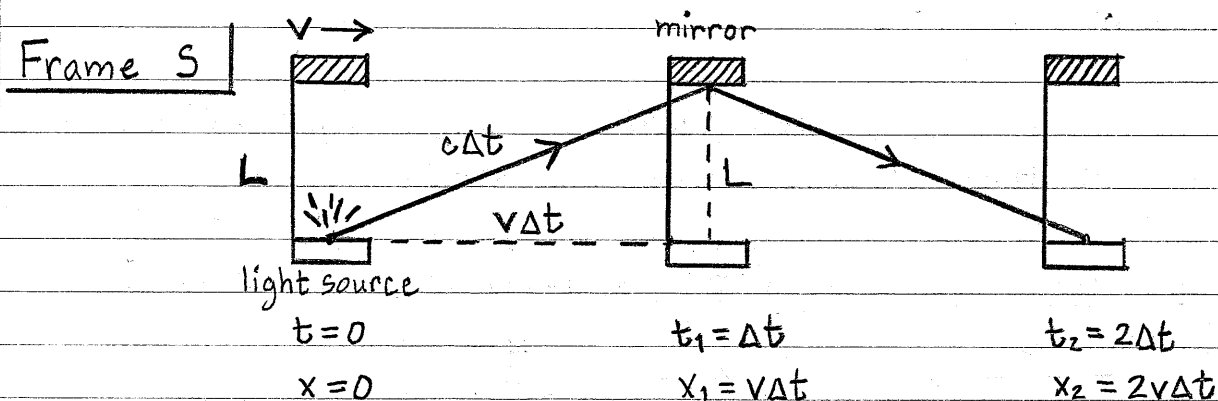 Frame S
v →
mirror
L
cΔt
L
vΔt
light source
t = 0
t₁ = Δt
t₂ = 2Δt
x = 0
x₁ = vΔt
x₂ = 2vΔt